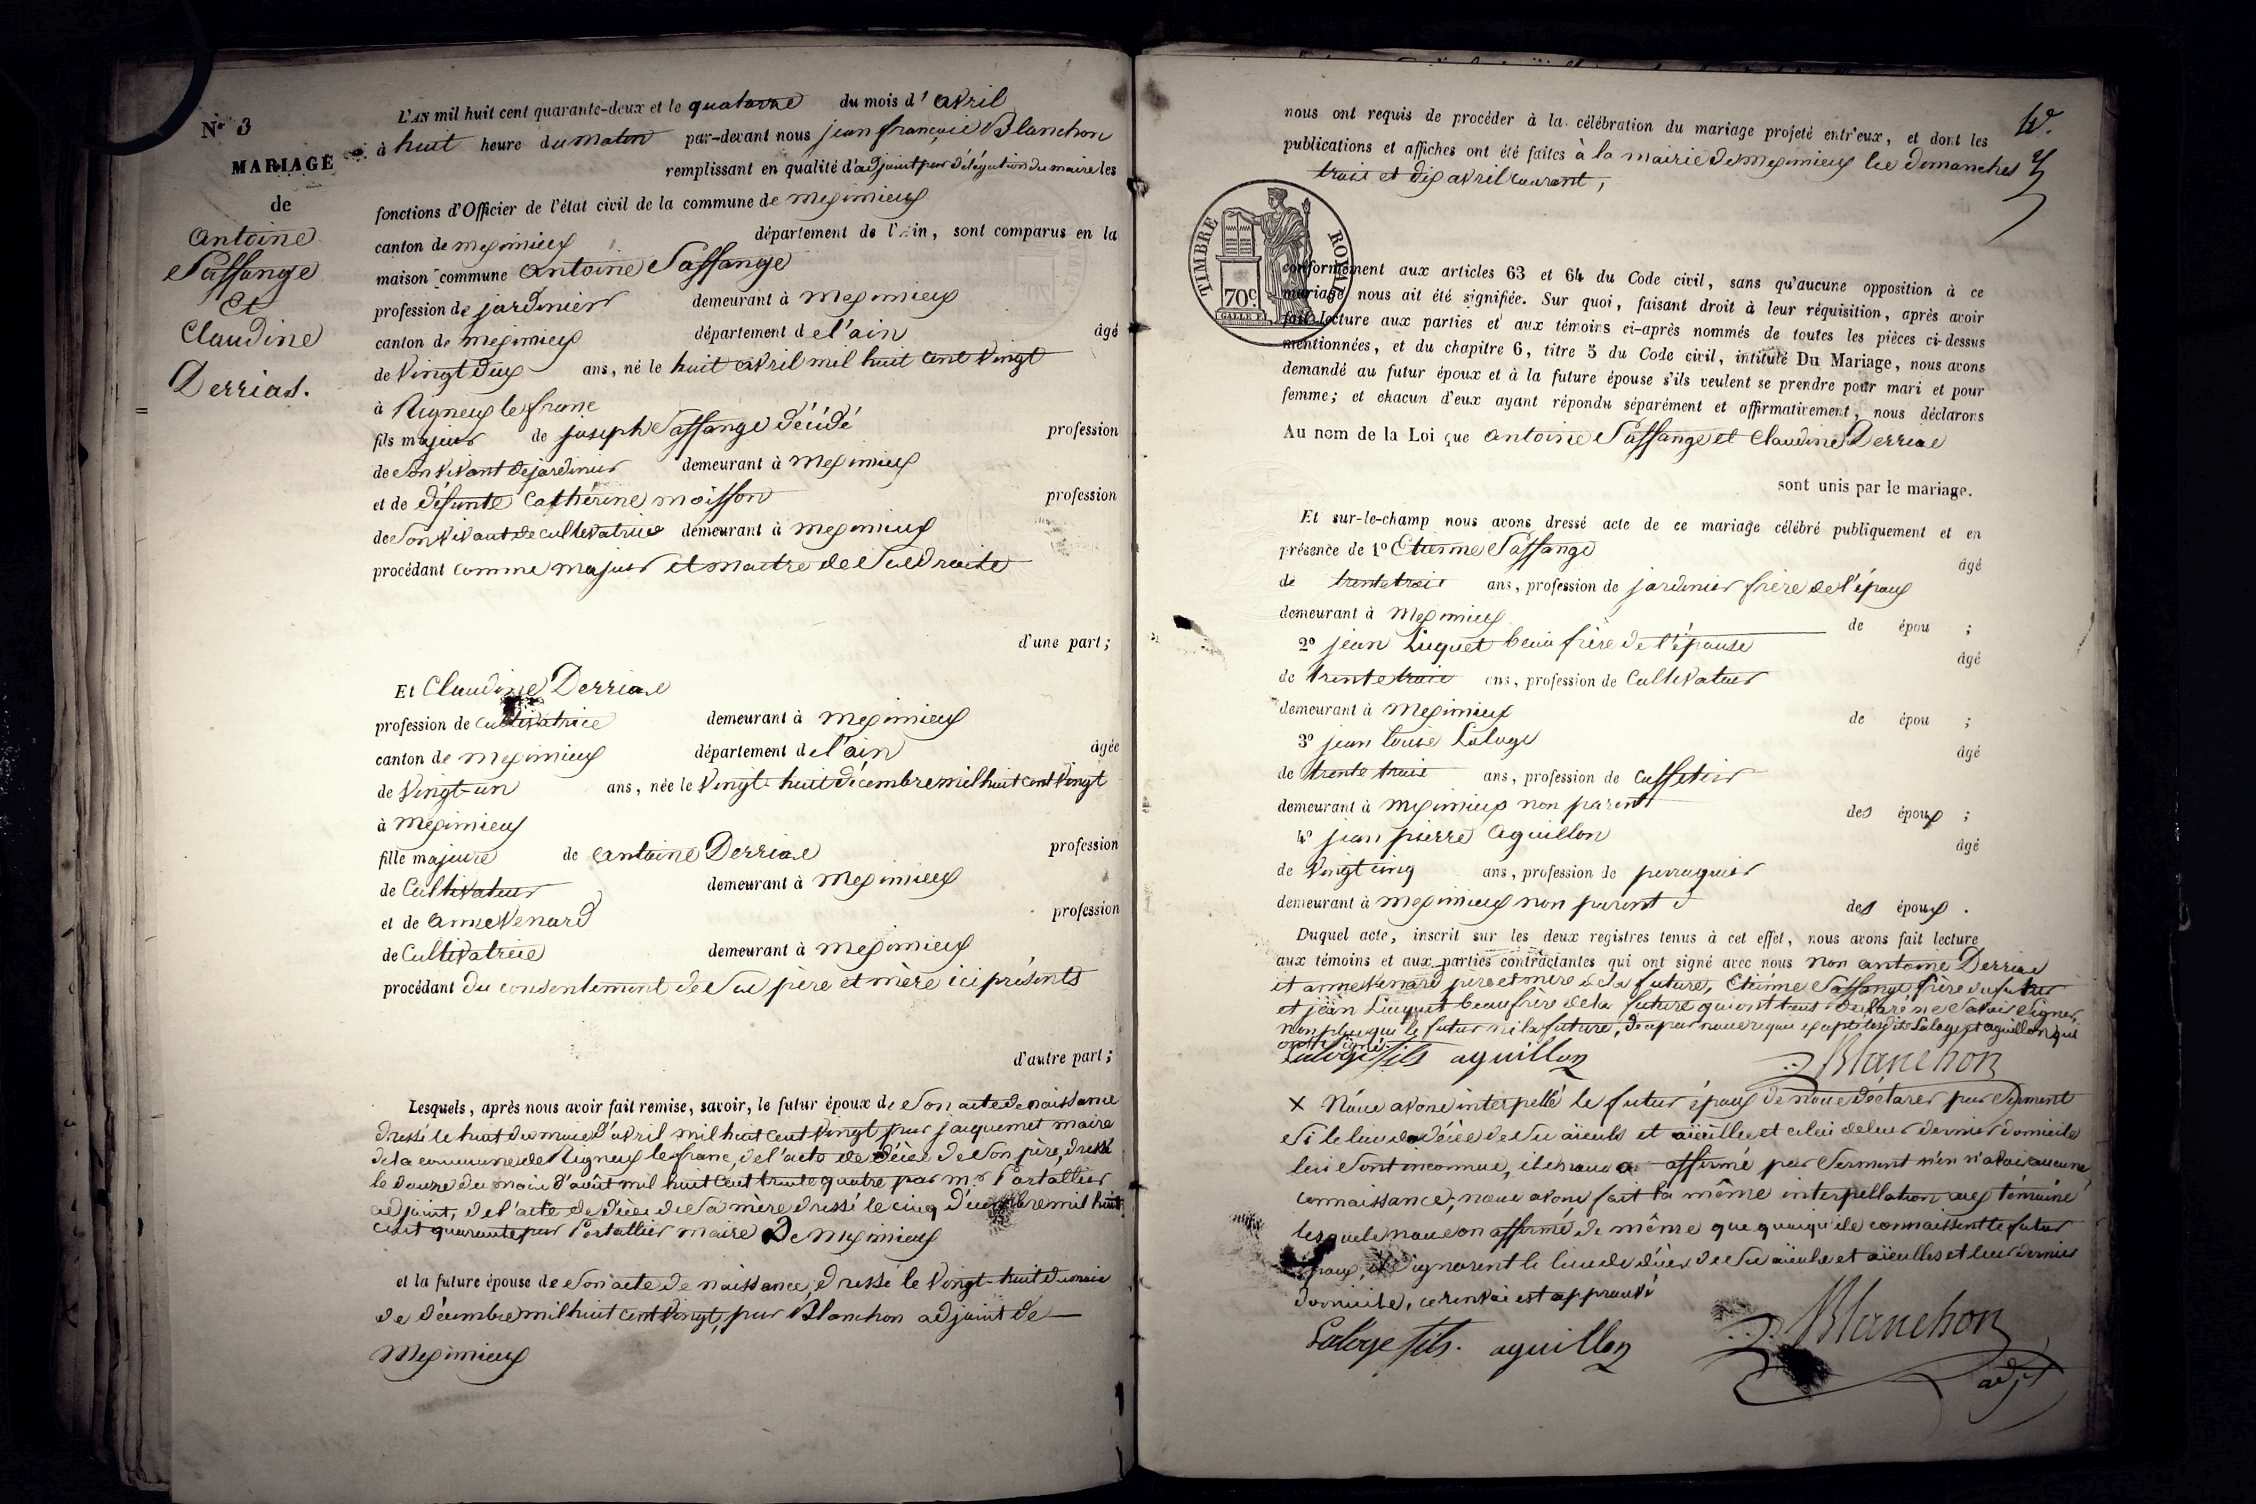 Nº 3
MARIAGE
de
Antoine
Saffange
et
Claudine
Derrias.
L'AN mil huit cent quarante-deux et le quatorze du mois d'avril
à huit heure du matin par-devant nous jean françois Blanchon
remplissant en qualité d'adjoint par délégation du maire les
fonctions d'Officier de l'état civil de la commune de meximieux
canton de meximieux département de l'Ain, sont comparus en la
maison commune antoine Saffange
profession de jardinier demeurant à meximieux
canton de meximieux département de l'ain âgé
de vingt deux ans, né le huit avril mil huit cent vingt
à Rigneux le franc
fils majeur de joseph Saffange décédé profession
de son vivant de jardinier demeurant à meximieux
et de défunte Cathérine moisson profession
de son vivant de cultivatrice demeurant à meximieux
procédant comme majeur et maitre de ses droits
d'une part;
Et Claudine Derrias
profession de cultivatrice demeurant à meximieux
canton de meximieux département de l'ain âgée
de vingt-un ans, née le vingt-huit décembre mil huit cent vingt
à meximieux
fille majeure de antoine Derrias profession
de Cultivateur demeurant à meximieux
et de anne Venard profession
de Cultivatrice demeurant à meximieux
procédant du consentement de ses père et mère ici présents
d'autre part;
Lesquels, après nous avoir fait remise, savoir, le futur époux de son acte de naissance
dressé le huit du mois d'avril mil huit cent vingt par jacquemet maire
de la commune de Rigneux le franc, de l'acte de décès de son père, dressé
le douze du mois d'août mil huit cent trente quatre par mr Portallier
adjoint, de l'acte de décès de sa mère dressé le cinq décembre mil huit
cent quarante par Portallier maire de meximieux
et la future épouse de son acte de naissance, dressé le vingt-huit du mois
de décembre mil huit cent vingt, par Blanchon adjoint de
meximieux
nous ont requis de procéder à la célébration du mariage projeté entr'eux, et dont les
publications et affiches ont été faites à la mairie de meximieux les dimanches
trois et dix avril courant,
TIMBRE ROYAL
70c.
conformément aux articles 63 et 64 du Code civil, sans qu'aucune opposition à ce
mariage nous ait été signifiée. Sur quoi, faisant droit à leur réquisition, après avoir
fait lecture aux parties et aux témoins ci-après nommés de toutes les pièces ci-dessus
mentionnées, et du chapitre 6, titre 5 du Code civil, intitulé Du Mariage, nous avons
demandé au futur époux et à la future épouse s'ils veulent se prendre pour mari et pour
femme; et chacun d'eux ayant répondu séparément et affirmativement, nous déclarons
Au nom de la Loi que antoine Saffange et Claudine Derrias
sont unis par le mariage.
Et sur-le-champ nous avons dressé acte de ce mariage célébré publiquement et en
présence de 1º Etienne Saffange âgé
de trente trois ans, profession de jardinier frère de l'époux
demeurant à meximieux de épou ;
2º jean Luquet beau frère de l'épouse âgé
de trente trois ans, profession de Cultivateur
demeurant à meximieux de épou ;
3º jean Louis Laloge âgé
de trente trois ans, profession de caffetier
demeurant à meximieux non parent des époux ;
4º jean pierre aguillon âgé
de vingt cinq ans, profession de perruquier
demeurant à meximieux non parent des époux .
Duquel acte, inscrit sur les deux registres tenus à cet effet, nous avons fait lecture
aux témoins et aux parties contractantes qui ont signé avec nous non antoine Derrias
et anne Venard père et mère de la future, Etienne Saffange frère du futur
et jean Luquet beau frère de la future qui ont tous déclaré ne savoir signer,
non plus que le futur ni la future, de ce par nous requis excepté lesdits Laloge et aguillon qui
ont signé.
Laloge fils aguillon Blanchon
X Nous avons interpellé le futur époux de nous déclarer par serment
si le lieu de décès de ses aïeuls et aïeulles et celui de leur dernier domicile
lui sont inconnus, il nous a affirmé par serment n'en n'avoir aucune
connaissance, nous avons fait la même interpellation aux témoins
lesquels nous on affirmé de même que quoiqu'ils connaissent le futur
époux, ils ignorent le lieu de décès de ses aïeuls et aïeulles et leur dernier
domicile, ce renvoi est approuvé
Laloge fils. aguillon Blanchon
adjt